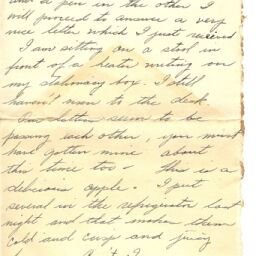 and a pen in the other I
will proceed to answer a very
nice letter which I just received
I am setting on a stool in
front of a heater writing on
my stationary box. I still
haven't been to the desk.
Our letters seem to be
passing each other, you must
have gotten mine about
this time too - this is a
delicious apple. I put
several in the refrigerator last
night and that makes them
cold and crisp and juicy